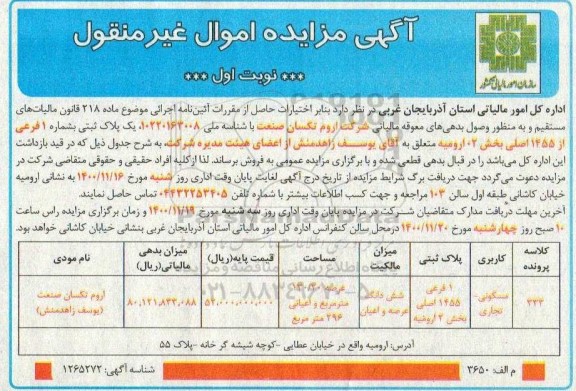 آگهی مزایده اموال غیرمنقول
*** نوبت اول ***
سازمان امور مالیاتی کشور
اداره کل امور مالیاتی استان آذربایجان غربی در نظر دارد بنابر اختیارات حاصل از مقررات آئین‌نامه اجرائی موضوع ماده ۲۱۸ قانون مالیات‌های
مستقیم و به منظور وصول بدهی‌های معوقه مالیاتی شرکت اروم تکسان صنعت با شناسه ملی ۱۰۲۲۰۱۶۳۰۰۸، یک پلاک ثبتی بشماره ۱ فرعی
از ۱۴۵۵ اصلی بخش ۰۲ ارومیه متعلق به آقای یوسف زاهدمنش از اعضای هیئت مدیره شرکت، به شرح جدول ذیل که در قید بازداشت
این اداره کل می‌باشد را در قبال بدهی قطعی شده و با برگزاری مزایده عمومی به فروش برساند. لذا از کلیه افراد حقیقی و حقوقی متقاضی شرکت در
مزایده دعوت می‌گردد جهت دریافت برگ شرایط مزایده از تاریخ درج آگهی لغایت پایان وقت اداری روز شنبه مورخ ۱۴۰۰/۱۱/۱۶ به نشانی ارومیه
خیابان کاشانی طبقه اول سالن ۱۰۳ مراجعه و جهت کسب اطلاعات بیشتر با شماره تلفن ۰۴۴۳۲۲۵۳۴۰۵ تماس حاصل نمایند.
آخرین مهلت دریافت مدارک متقاضیان شرکت در مزایده پایان وقت اداری روز سه شنبه مورخ ۱۴۰۰/۱۱/۱۹ و زمان برگزاری مزایده راس ساعت
۱۰ صبح روز چهارشنبه مورخ ۱۴۰۰/۱۱/۲۰ در محل سالن کنفرانس اداره کل امور مالیاتی استان آذربایجان غربی بنشانی خیابان کاشانی خواهد بود.
کلاسه پرونده | کاربری | پلاک ثبتی | میزان مالکیت | مساحت | قیمت پایه(ریال) | میزان بدهی مالیاتی(ریال) | نام مودی
۳۳۲ | مسکونی- تجاری | ۱ فرعی ۱۴۵۵ اصلی بخش ۲ ارومیه | شش دانگ عرصه و اعیان | مترمربع و اعیانی ۲۹۶ متر مربع | ۵۴,۰۰۰,۰۰۰,۰۰۰ | ۸۰,۱۲۱,۸۳۳,۰۸۸ | اروم تکسان صنعت (یوسف زاهدمنش)
آدرس: ارومیه واقع در خیابان عطایی -کوچه شیشه گر خانه -پلاک ۵۵
م الف: ۳۶۵۰
شناسه آگهی: ۱۲۶۵۲۷۲